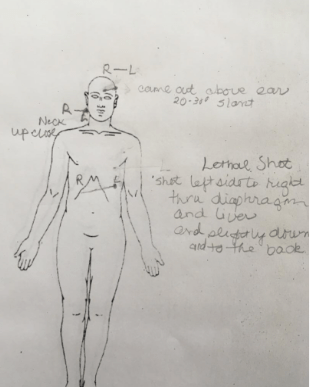 R—L
came out above ear
20-30° slant
R—
Neck
up close
R M L
Lethal Shot
shot left side to right
thru diaphragm
and liver
and slightly down
and to the back